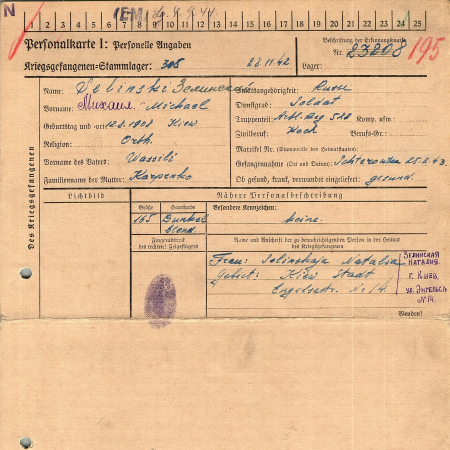 N
1 2 3 4 5 6 7 8 9 10 11 12 13 14 15 16 17 18 19 20 21 22 23 24 25
Personalkarte I: Personelle Angaben
Beschriftung der Erkennungsmarke
Nr. 23208
195
Kriegsgefangenen-Stammlager: 305
22.11.42
Lager:
Des Kriegsgefangenen
Name: Selinski Зелинский
Staatsangehörigkeit: Russe
Vorname: Михаил. Michael
Dienstgrad: Soldat
Truppenteil: Komp. usw.
Geburtstag und -ort: 12.8.1908 Kiew
Zivilberuf: Koch Berufs-Gr.:
Religion: Orth.
Matrikel Nr. (Stammrolle des Heimatstaates):
Vorname des Vaters: Wassili
Gefangennahme (Ort und Datum):
Familienname der Mutter: Karpenko
Ob gesund, krank, verwundet eingeliefert: gesund.
Lichtbild
Nähere Personalbeschreibung
Größe
Haarfarbe
Besondere Kennzeichen:
165
Dunkel
blond
keine.
Fingerabdruck
des rechten! Zeigefingers
Name und Anschrift der zu benachrichtigenden Person in der Heimat
des Kriegsgefangenen
Frau: Selinskaja Natalia
Gebiet: Kiew Stadt
Engelsstr. Nr 14.
ЗЕЛИНСКАЯ
НАТАЛИЯ.
г. КИЕВ,
ул. ЭНГЕЛЬСА
№14.
Wenden!